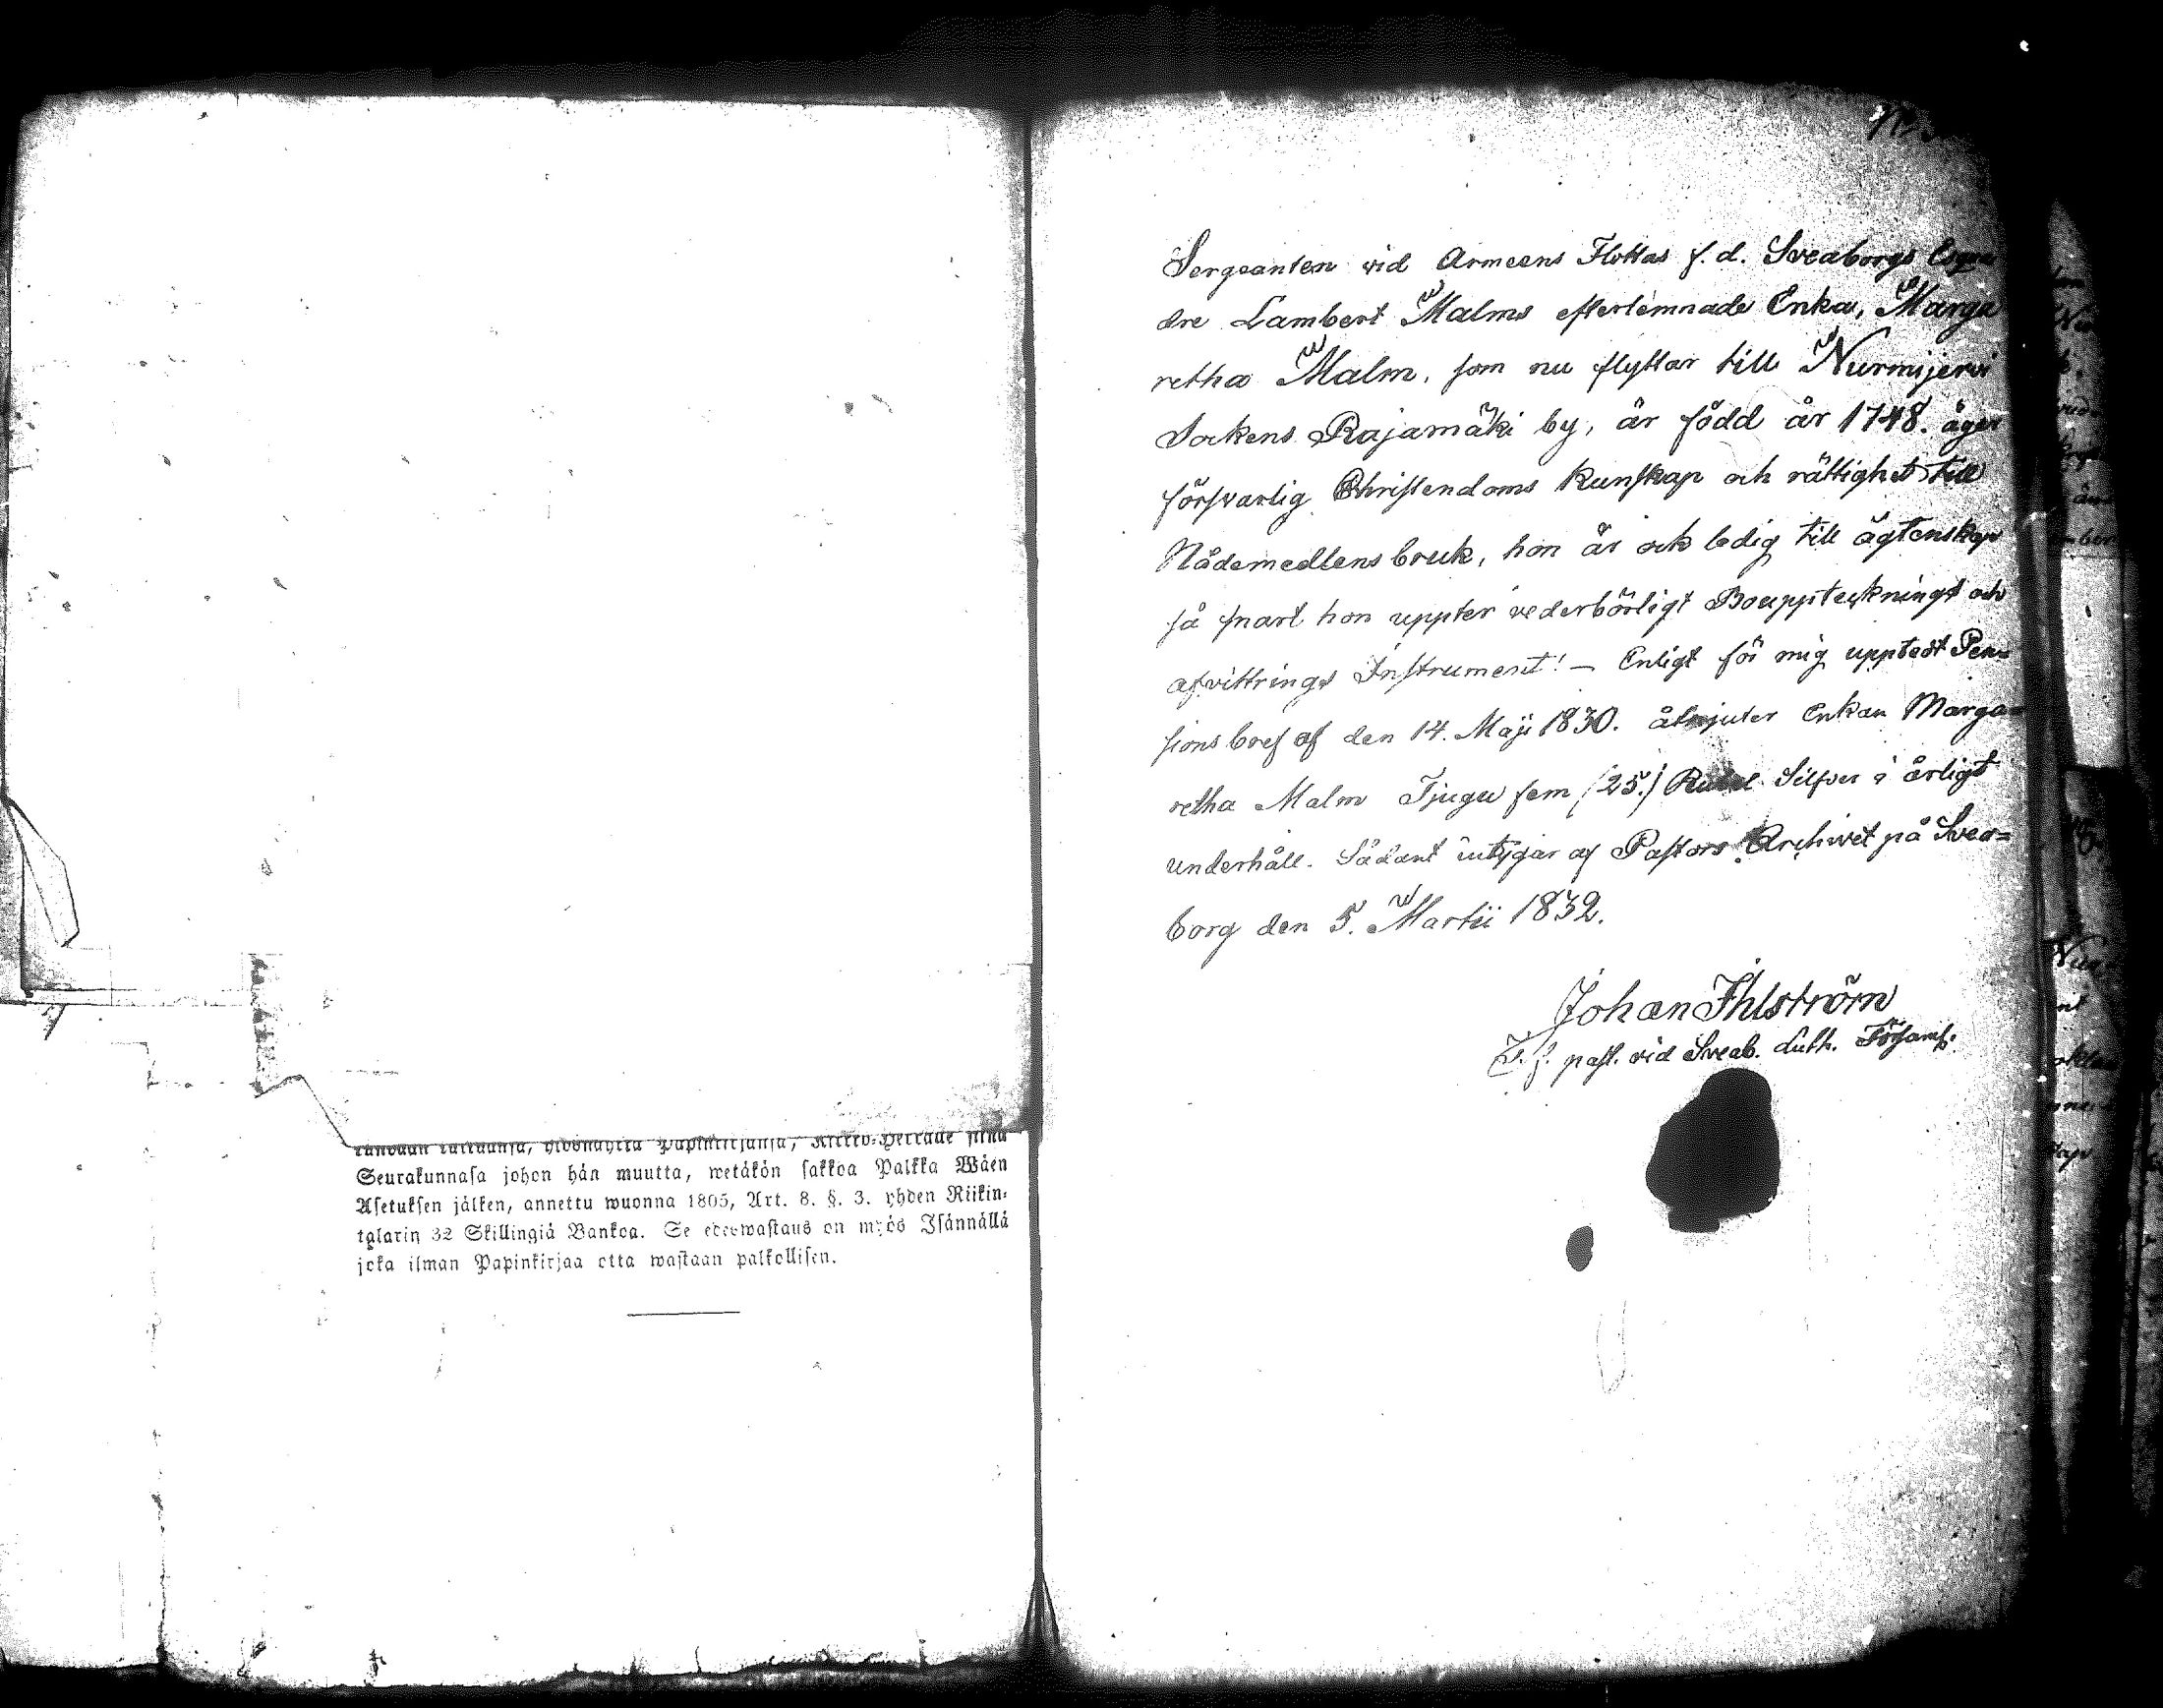 Seurakunnasa johon hän muutta, wetäkön sakkoa Palkka Wäen
Asetuksen jälken, annettu wuonna 1805, Art. 8. §. 3. yhden Riikin-
talarin 32 Skillingiä Bankoa. Se edeswastaus on myös Isännällä
joka ilman Papinkirjaa otta wastaan palkollisen.
Sergeanten vid Armeens Flottas f. d. Sveaborgs Esqua
dre Lambert Malms efterlemnade Enka, Marga
retha Malm, som nu flyttar till Nurmijerwi
Sockens Rajamäki by, är född år 1748. äger
försvarlig Christendoms Kunskap och rättighet till
Nådemedlens bruk, hon är ock ledig till ägtenskap
så snart hon uppter vederbörligt Bouppteckningt och
afvittrings Instrument! — Enligt för mig upptedt Pen=
sions bref af den 14. Maji 1830. åtnjuter Enkan Marga=
retha Malm Tjugu fem /25./ Rubel Silfver i årligt
underhåll. Sådant intygar af Pastors Archivet på Svea=
borg den 5. Martii 1832.
Johan Ihlström
T. f. past. vid Sveab. Luth. Församl.